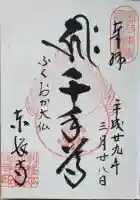 奉拝
平成廿九年
三月廿八日
千手尊
ふくおか大仏
東長寺